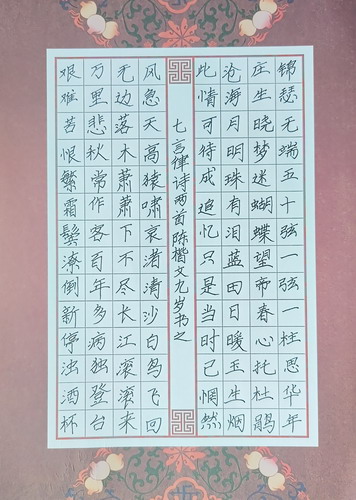 锦瑟无端五十弦一弦一柱思华年
庄生晓梦迷蝴蝶望帝春心托杜鹃
沧海月明珠有泪蓝田日暖玉生烟
此情可待成追忆只是当时已惘然
七言律诗两首陈楷文九岁书之
风急天高猿啸哀渚清沙白鸟飞回
无边落木萧萧下不尽长江滚滚来
万里悲秋常作客百年多病独登台
艰难苦恨繁霜鬓潦倒新停浊酒杯